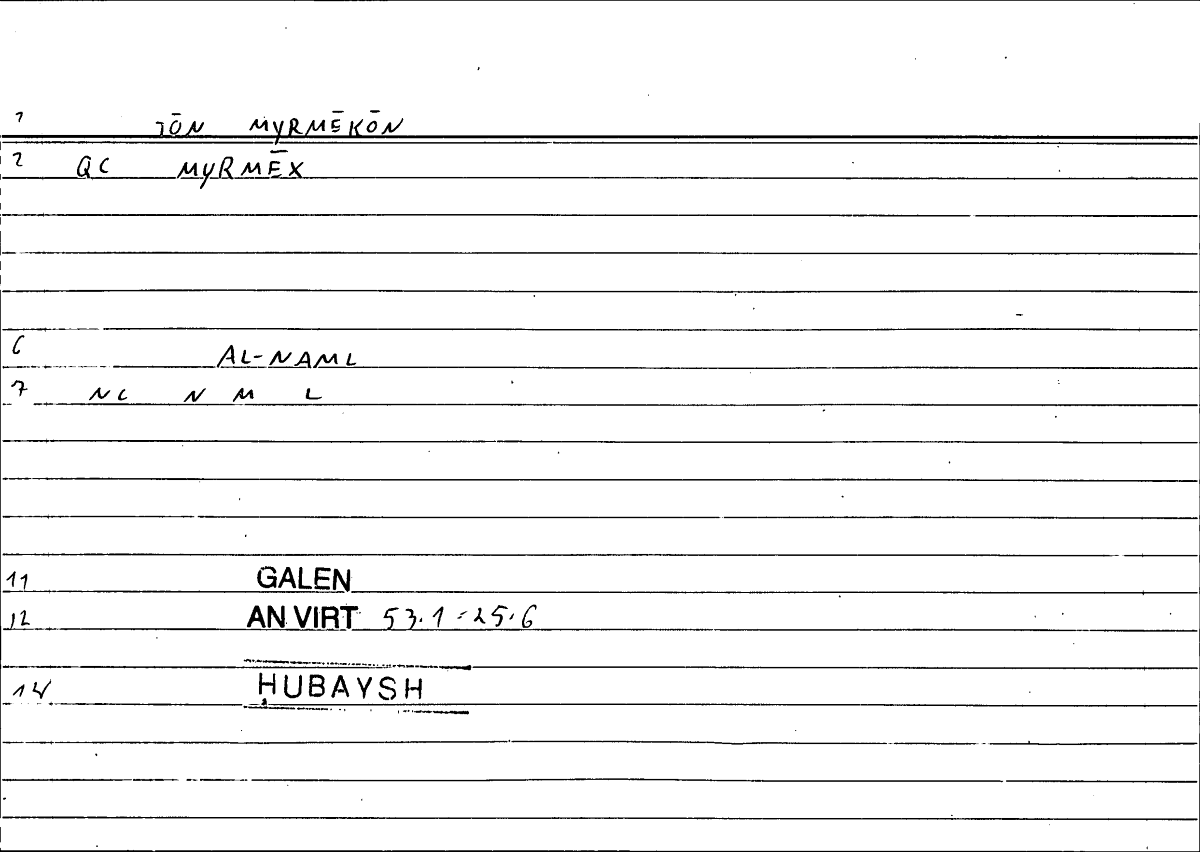 1 TŌN MYRMĒKŌN
2 QC MYRMĒX
6 AL-NAML
7 NC N M L
11 GALEN
12 AN VIRT 53.1-25.6
14 ḤUBAYSH